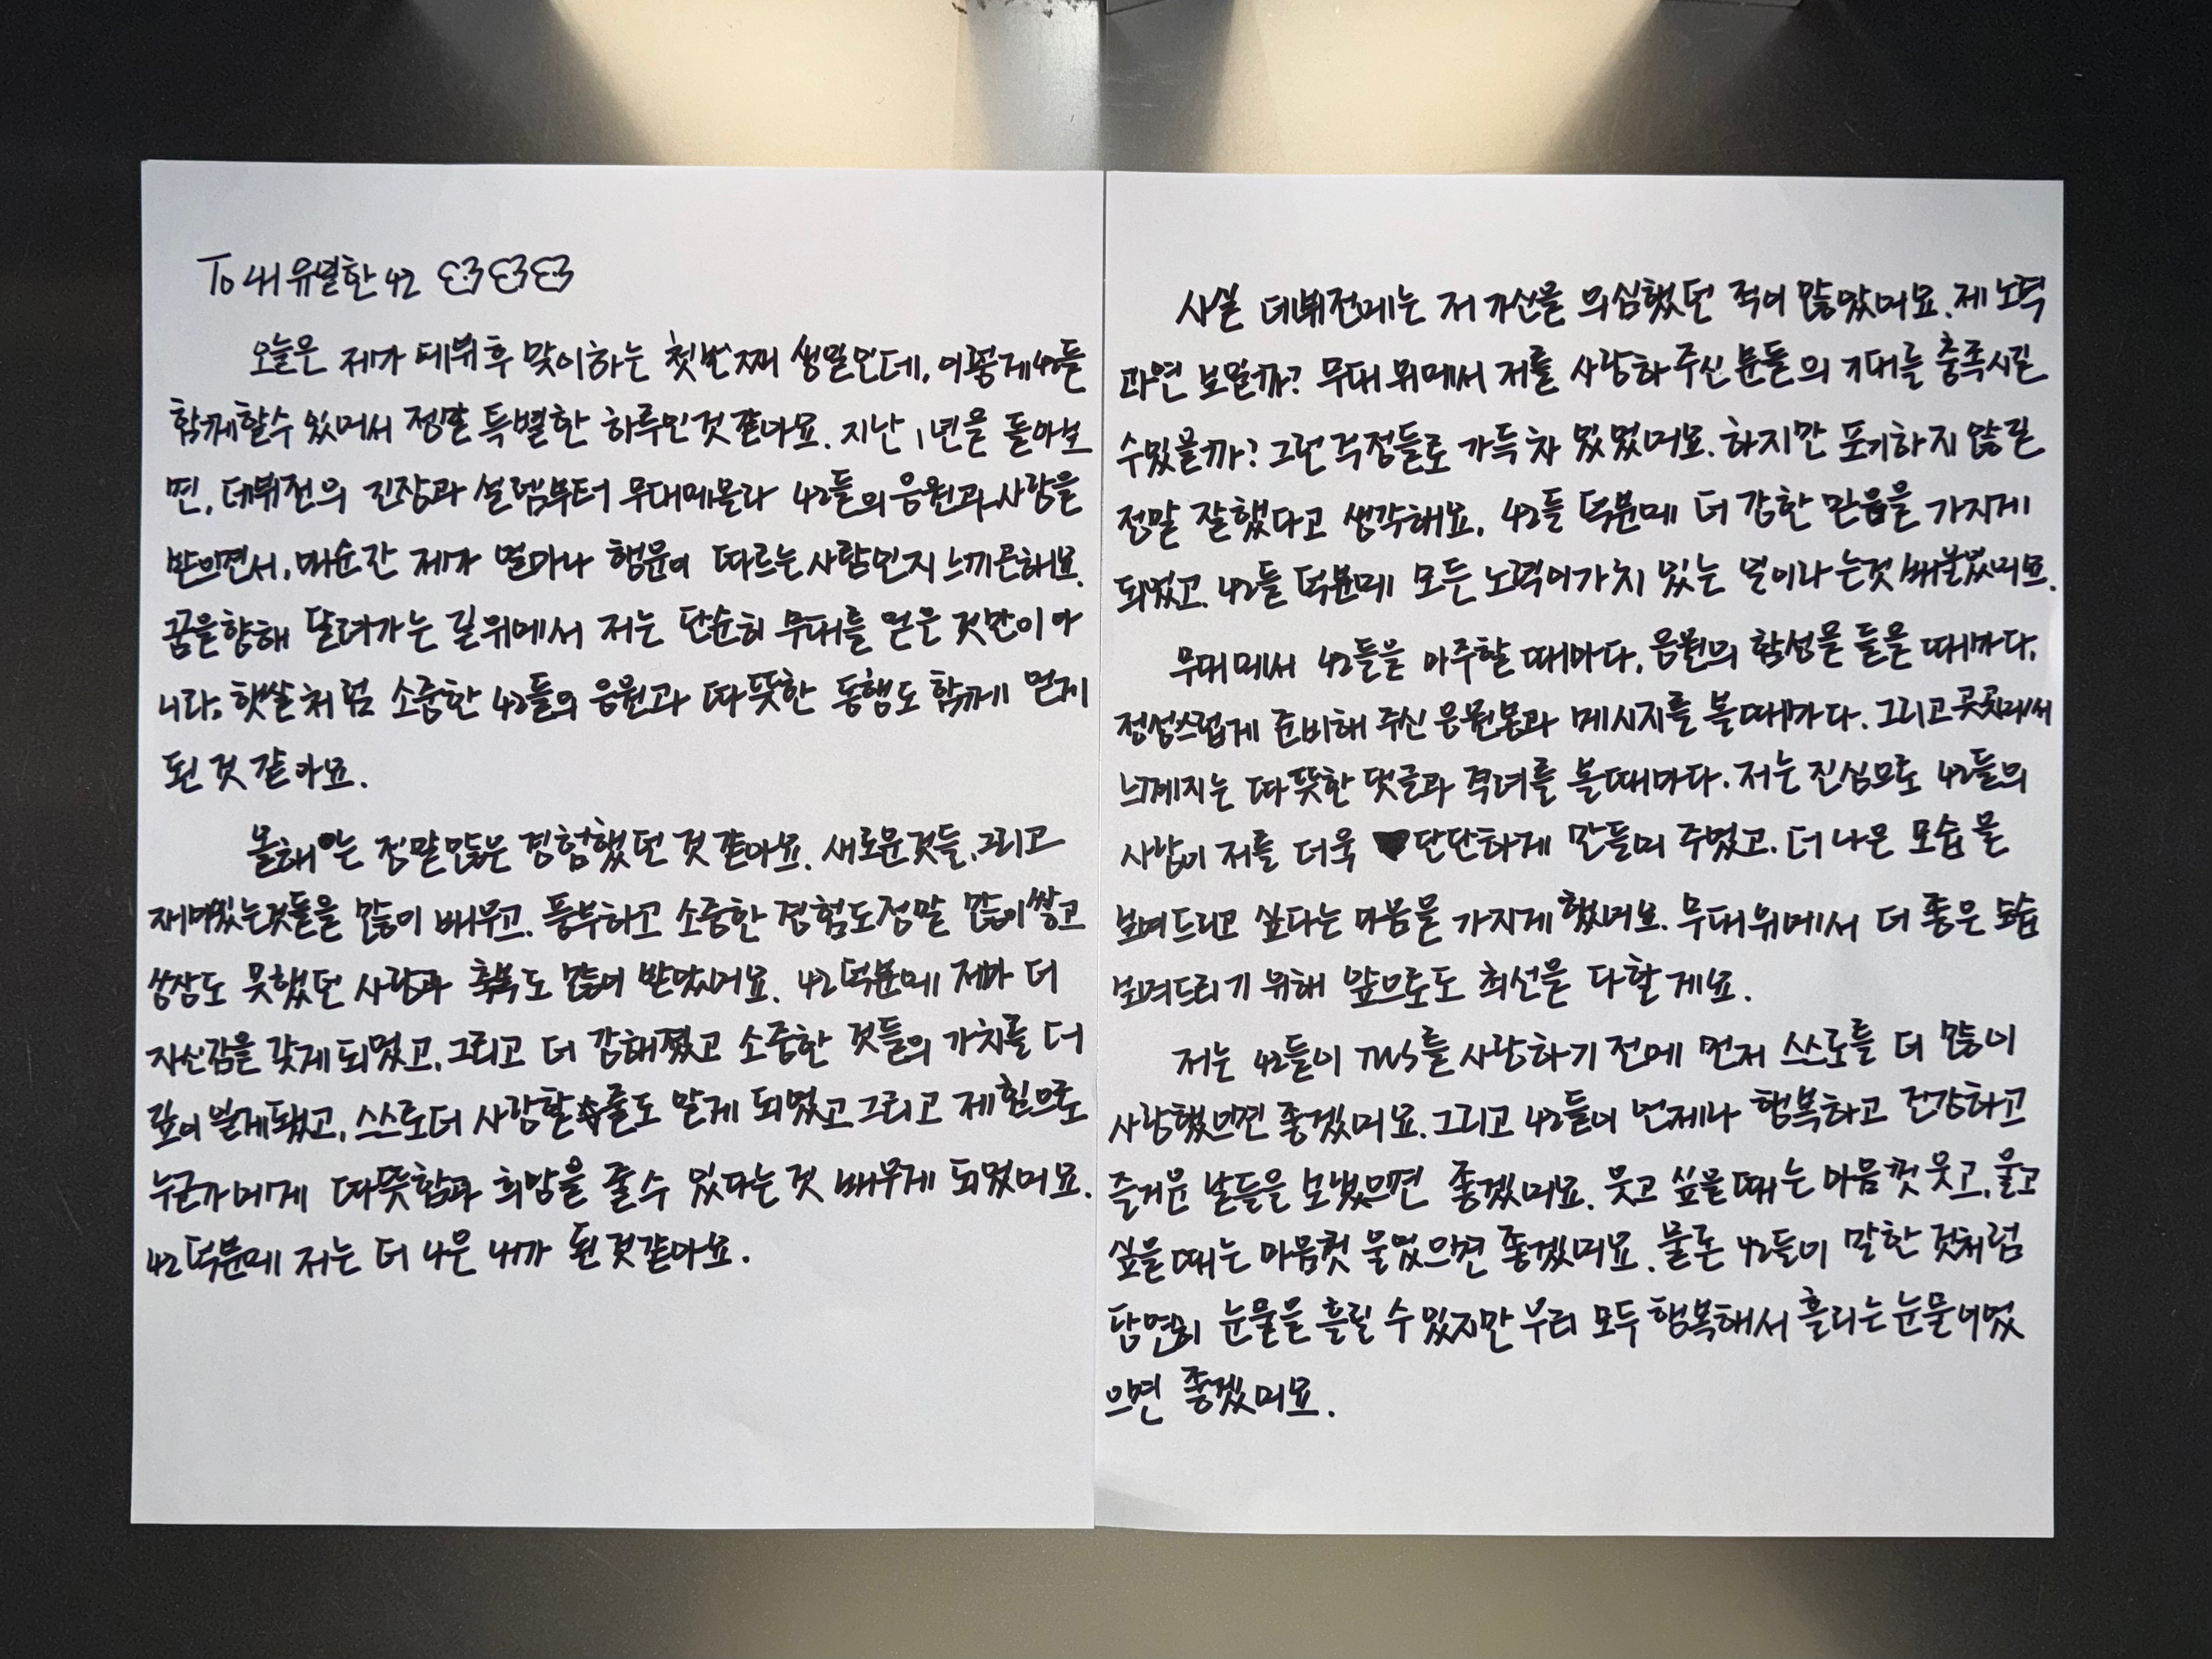 To 내 유별한 42
오늘은 제가 데뷔 후 맞이하는 첫 번째 생일인데, 이렇게 42들
함께할수 있어서 정말 특별한 하루인것 같아요. 지난 1년을 돌아보
면, 데뷔전의 긴장과 설렘부터 무대에올라 42들의 응원과 사랑을
받으면서, 매순간 제가 얼마나 행운이 따르는 사람인지 느끼곤해요.
꿈을향해 달려가는 길 위에서 저는 단순히 무대를 얻은 것만이 아
니라, 햇살처럼 소중한 42들의 응원과 따뜻한 동행도 함께 얻게
된 것 같아요.
올해는 정말많은 경험했던 것 같아요. 새로운것들, 그리고
재미있는것들을 많이 배우고. 풍부하고 소중한 경험도정말 많이쌓고
상상도 못했던 사랑과 축복도 많이 받았어요. 42 덕분에 제가 더
자신감을 갖게 되었고, 그리고 더 강해졌고 소중한 것들의 가치를 더
깊이 알게됐고, 스스로더 사랑할 줄도 알게 되었고 그리고 제 힘으로
누군가에게 따뜻함과 희망을 줄 수 있다는 것 배우게 되었어요.
42 덕분에 저는 더 나은 내가 된 것같아요.
사실 데뷔전에는 저 자신을 의심했던 적이 많았어요. 제 노력
과연 보일까? 무대 위에서 저를 사랑하 주신 분들의 기대를 충족시킬
수있을까? 그런 걱정들로 가득 차 있었어요. 하지만 포기하지 않길
정말 잘했다고 생각해요. 42들 덕분에 더 강한 믿음을 가지게
되었고. 42들 덕분에 모든 노력이가치 있는 일이라는것 배울었어요.
무대에서 42들을 마주할 때마다, 응원의 함성을 들을 때마다,
정성스럽게 준비해 주신 응원봉과 메시지를 볼 때마다. 그리고 곳곳에서
느껴지는 따뜻한 댓글과 격려를 볼때마다. 저는 진심으로 42들의
사랑이 저를 더욱 단단하게 만들어 주었고. 더 나은 모습을
보여드리고 싶다는 마음을 가지게 했어요. 무대위에서 더 좋은 모습
보여드리기 위해 앞으로도 최선을 다할게요.
저는 42들이 TWS를 사랑하기 전에 먼저 스스로를 더 많이
사랑했으면 좋겠어요. 그리고 42들이 언제나 행복하고 건강하고
즐거운 날들을 보냈으면 좋겠어요. 웃고 싶을 때는 마음껏 웃고, 울고
싶을 때는 마음껏 울었으면 좋겠어요. 물론 42들이 말한 것처럼
당연히 눈물을 흘릴 수 있지만 우리 모두 행복해서 흘리는 눈물이었
으면 좋겠어요.